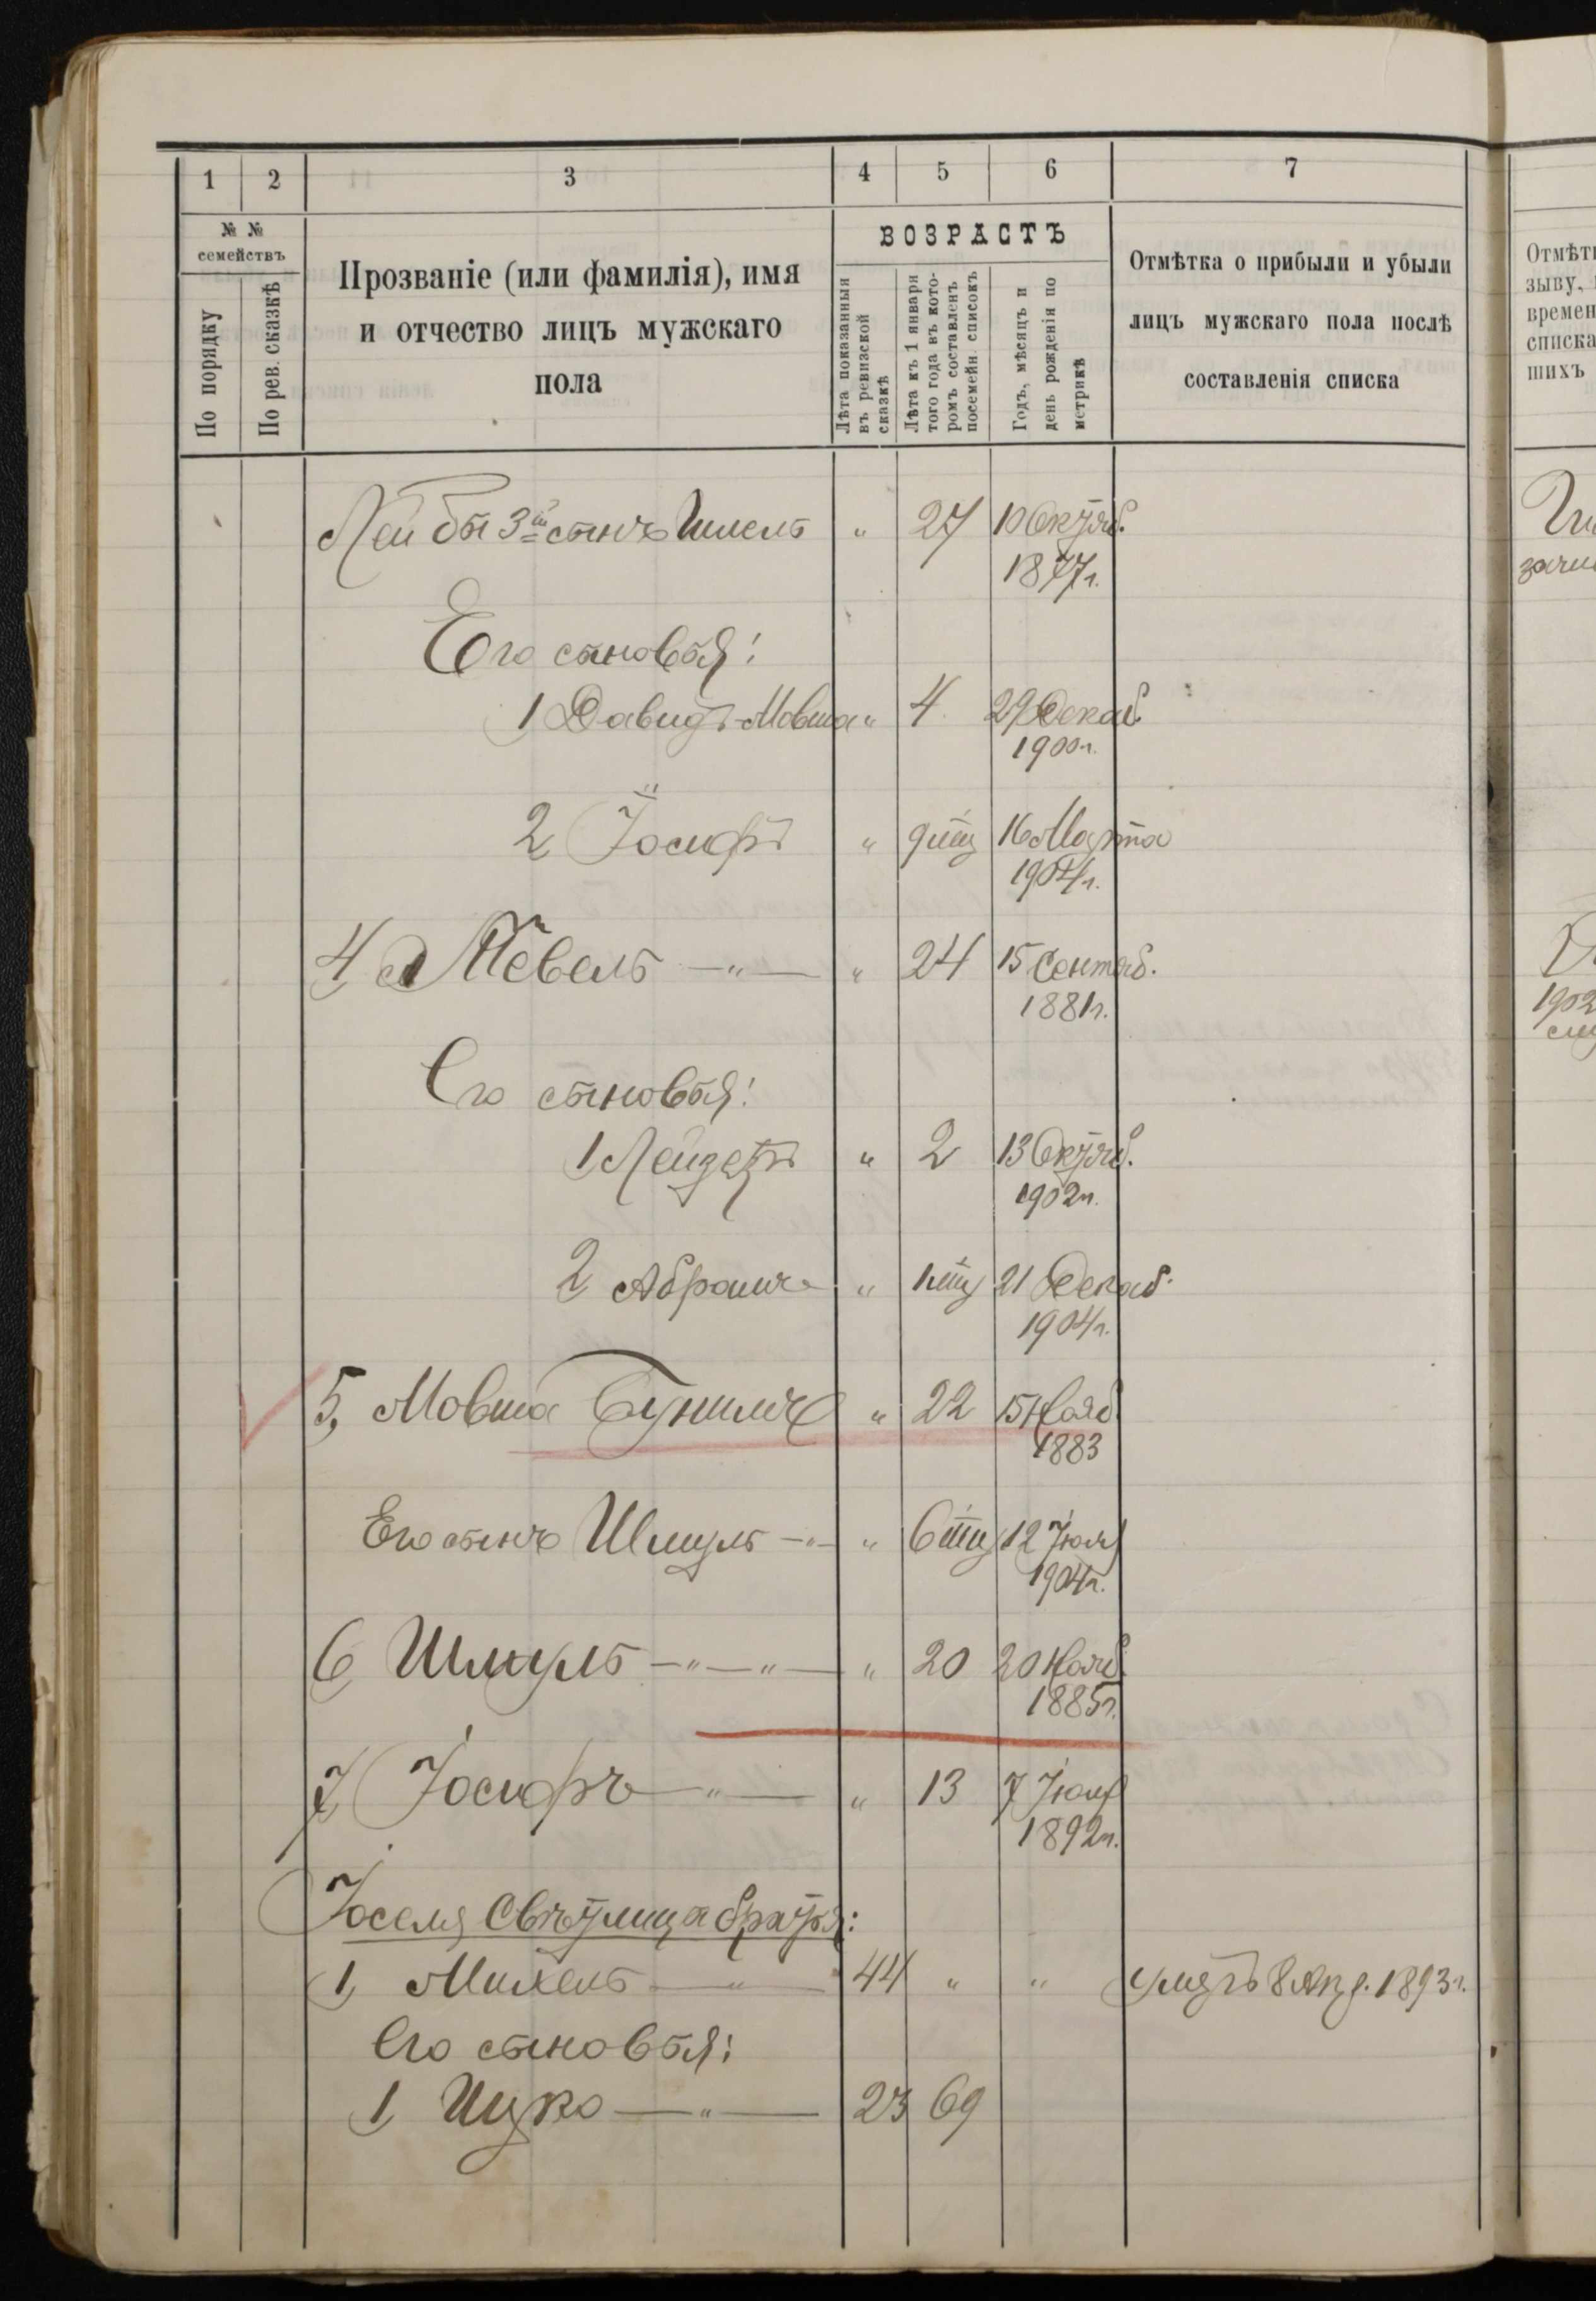 1 2 3 4 5 6 7
№ №
семействъ
По порядку
По рев. сказкѣ
Прозваніе (или фамилія), имя
и отчество лицъ мужскаго
пола
ВОЗРАСТЪ
Лѣта показанныя
въ ревизской
сказкѣ
Лѣта къ 1 января
того года въ кото-
ромъ составленъ
посемейн. списокъ
Годъ, мѣсяцъ и
день рожденія по
метрикѣ
Отмѣтка о прибыли и убыли
лицъ мужскаго пола послѣ
составленія списка
Лейбы 3й сынъ Шмель " 27 10 Октяб.
1877 г.
Его сыновья:
1 Давидъ-Мовша " 4 29 Декаб.
1900 г.
2 Іосифъ " 9 мѣц 16 Марта
1904 г.
4, Мевель —"— " 24 15 Сентяб.
1881 г.
Его сыновья:
1 Лейзеръ " 2 13 Октяб.
1902 г.
2 Абрамъ " 1 мѣц 21 Декаб.
1904 г.
5, Мовша " 22 15 Нояб.
1883
Его сынъ Шмуль —"— " 6 мѣц 12 Іюля
1904 г.
6, Шмуль —"—"— " 20 20 Нояб.
1885 г.
7, Іосифъ —"— " 13 7
1892 г.
Іоселя братья:
1, Михель —"— 44 " " умеръ 8 Апр. 1893 г.
Его сыновья:
1, Ицко —"— 23 69
Отмѣт
зыву,
времен
списка
шихъ
1902